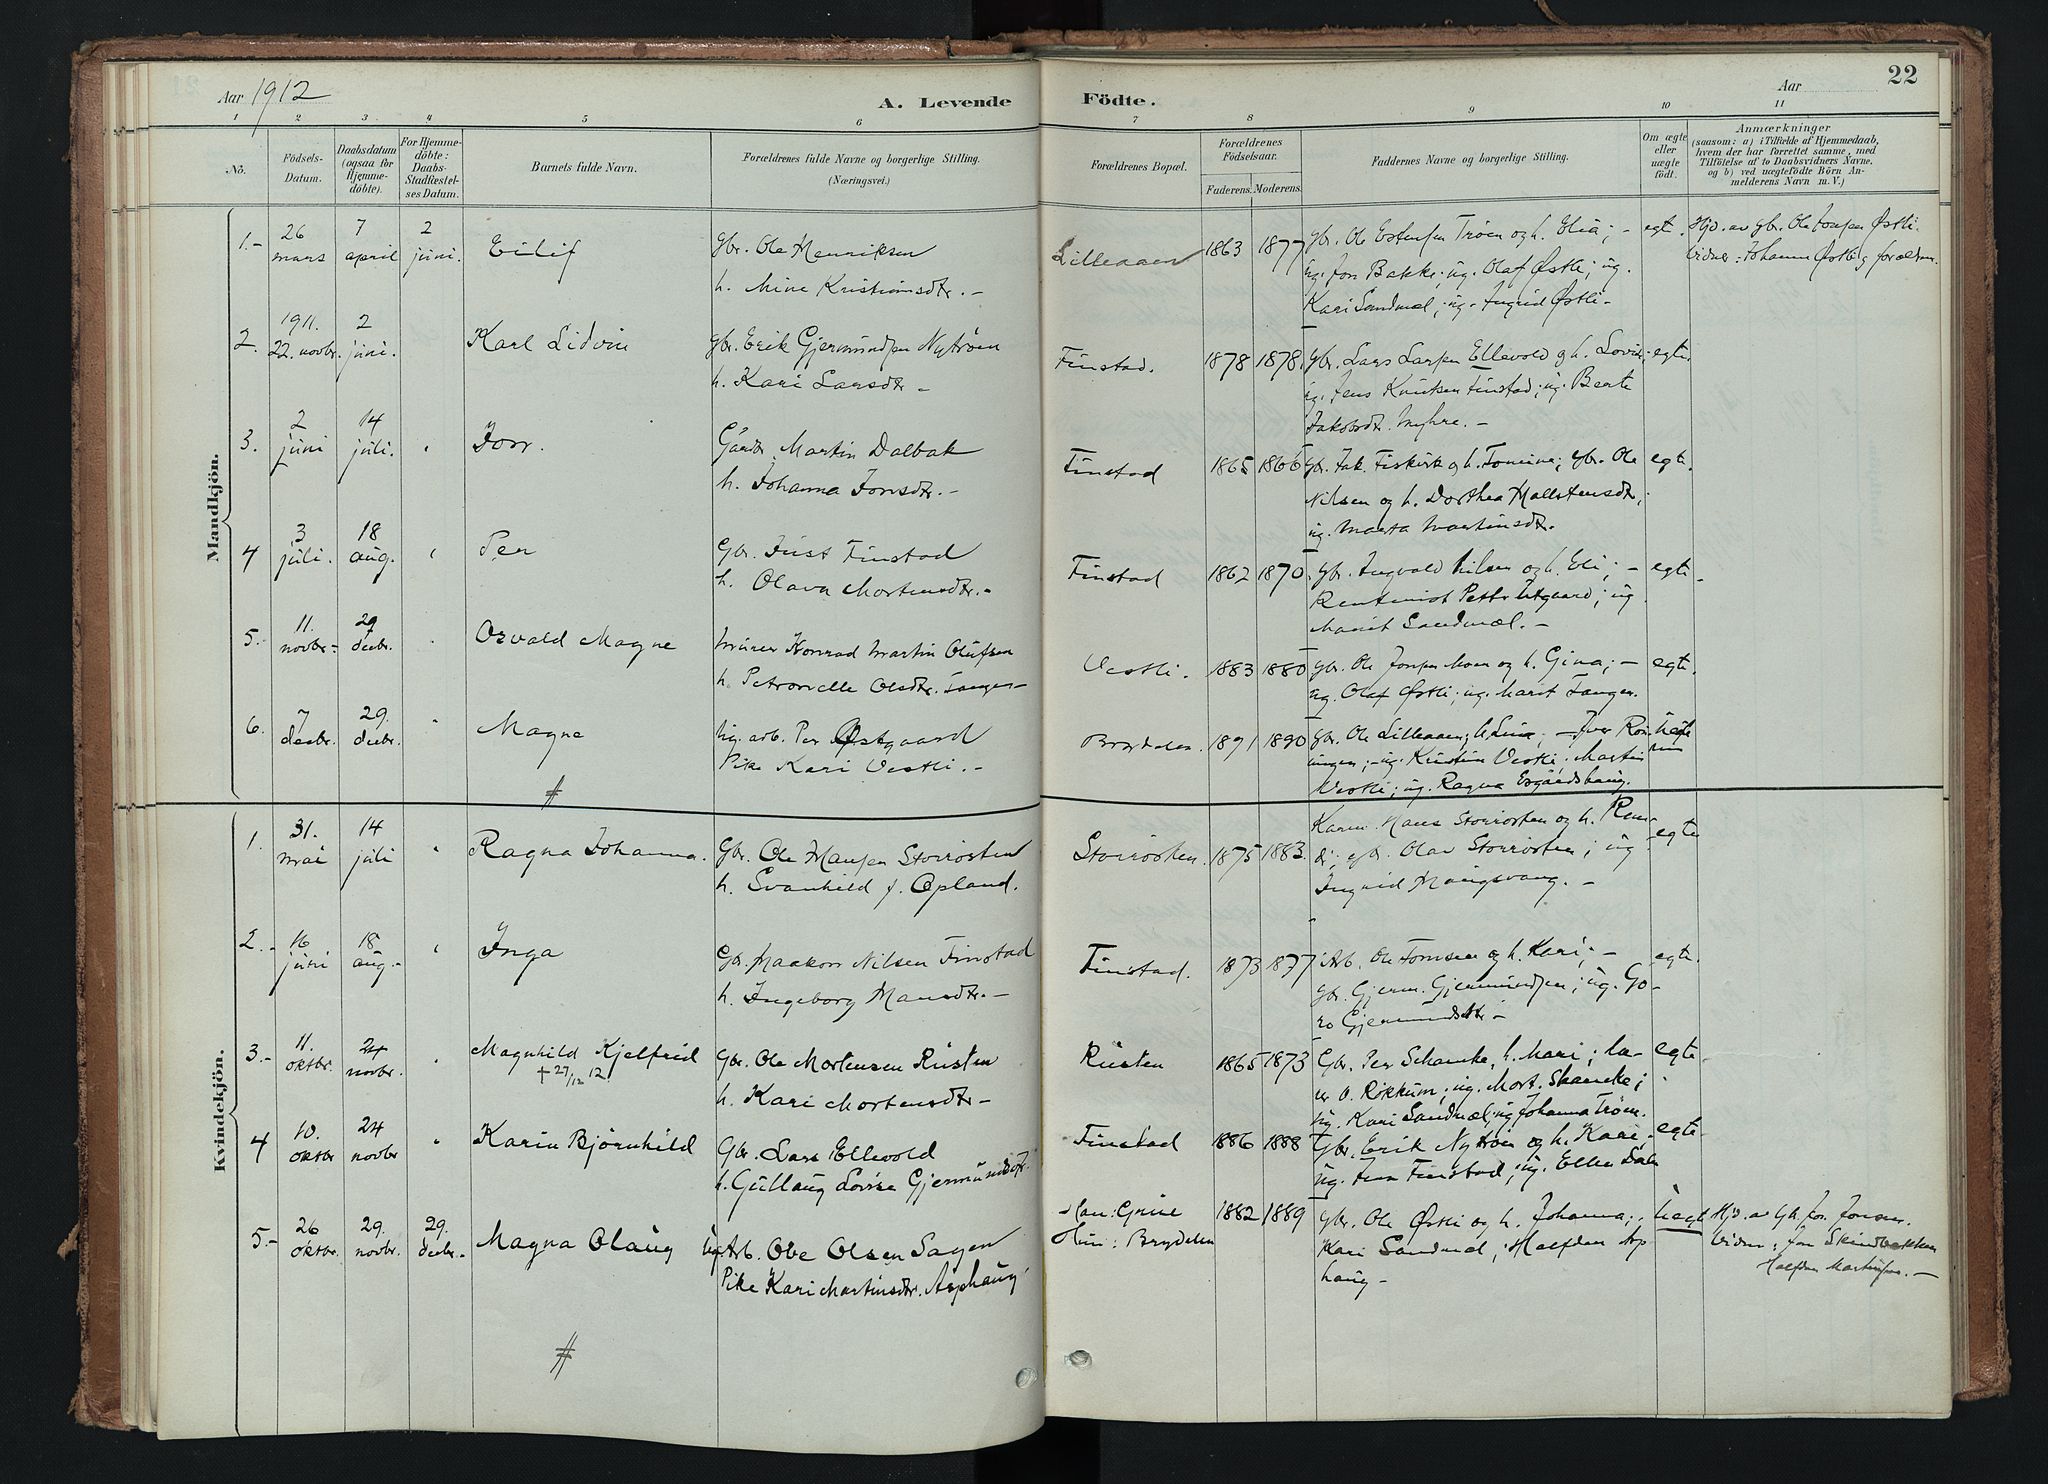 Aar 1912
A. Levende Födte.
Aar
22
1 2 3 4 5 6 7 8 9 10 11
No.
Födsels-
Datum.
Daabsdatum
(ogsaa för
Hjemme-
döbte).
For Hjemme-
döbte:
Daabs-
Stadfæstel-
ses Datum.
Barnets fulde Navn.
Forældrenes fulde Navne og borgerlige Stilling.
(Næringsvei.)
Forældrenes Bopæl.
Forældrenes
Födselsaar.
Faderens. Moderens.
Faddernes Navne og borgerlige Stilling.
Om ægte
eller
uægte
födt.
Anmærkninger
(saasom: a) i Tilfælde af Hjemmedaab,
hvem der har forrettet samme, med
Tilföielse af to Daabsvidners Navne,
og b) ved uægtefödte Börn An-
melderens Navn m. V.)
Mandkjön.
1.- 26 mars 7 april 2 juni. Eilif
Gbr. Ole Henriksen
h. Mine Kristiansdtr. -
Lilleaaen 1863 1877
Gbr. Ole Estensen Trøen og h. Elia; -
ug. Jon Bakke; ug. Olaf Østli; ug.
Kari Sandmæl; ug. Ingrid Østli -
egt.
Hjd. av gbr. Ole Jonsen Østli.
Vidner: Johanne Østli og foreldre.
2. 1911. 22. novbr. 2 juni. Karl Lidvin
Gbr. Erik Gjermundsen Nytrøen
h. Kari Larsdtr -
Finstad. 1878 1878.
Gbr. Lars Larsen Ellevold og h. Lovise;
ug. Jens Knutsen Finstad; ug. Berte
Jakobsdtr. Myhre. -
egte.
3. 2 juni 14 juli. Jon.
Gaardbr. Martin Dalbak
h. Johanna Jonsdtr. -
Finstad 1865 1866
Gbr. Jak. Fiskvik og h. Tomine; gbr. Ole
Nilsen og h. Dorthea Hallstensdtr.;
ug. Marta Martinsdtr.
egte.
4 3 juli. 18 aug. Per
Gbr. Just Finstad
h. Olava Mortensdtr. -
Finstad 1862 1870
Gbr. Ingvald Nilsen og h. Eli; -
Rentenist Petter Utgaard; ug.
Marit Sandmæl. -
egte -
5.- 11. novbr. - 29 decbr. Osvald Magne
Murer Konrad Martin Olufsen
h. Petronelle Olsdtr. Tangen -
Vestli. 1883 1880
Gbr. Ole Jonsen Moen og h. Gina; -
ug. Olaf Østli; ug. Marit Tangen.
egte.
6. 7 decbr. 29. decbr. Magne
Ug. arb. Per Østgaard
Pike Kari Vestli. -
Brydalen. 1891 1890
Gbr. Ole Lilleaaen; h. Lina; - Iver Røn-
ningen; - ug. Kristin Vestli. Martin
Vestli; ug. Ragna Esgaardshaug.
#
Kvindekjön.
1. 31. mai 14 juli Ragna Johanna.
Gbr. Ole Hansen Storrøsten
h. Svanhild f. Opland.
Storrøsten. 1875 1883.
Hans Storrøsten og h. Ran-
di; gbr. Olav Storrøsten; ug
Ingrid Haugsvang. -
egte
2.- 16 juni 18 aug. - Inga
Gbr. Haakon Nilsen Finstad
h. Ingeborg Hansdtr. -
Finstad. 1873 1877
Arb. Ole Tomsen og h. Kari; -
Gbr. Gjerm. Gjermundsen; ug. Go-
ro Gjermundsdtr -
egte.
3.- 11. oktbr. 24 novbr. Magnhild Kjelfrid
† 27/12 12.
Gbr. Ole Mortensen Rusten
h. Kari Mortensdtr -
Rusten 1865 1873
Gbr. Per Schancke, h. Mari; læ-
rer O. Røkkum; ug. Mort. Skancke;
ug. Kari Sandmæl; ug Johanna Trøen.
egte
4 10. oktbr 24 novbr Karin Bjørnhild
Gbr. Lars Ellevold
h. Gullaug Lovise Gjermundsdtr.
Finstad 1886 1888
Gbr. Erik Nytrøen og h. Kari;
ug. Jens Finstad; ug. Ellen
egte -
5.- 26 oktbr. 29. novbr. 29. decbr. - Magna Olaug
Ug Arb. Ole Olsen Sagen
Pike Kari Martinsdtr. Asphaug
Han: Grue
Hun: Brydalen
1882 1889
Gbr. Ole Østli og h. Johanna;
Kari Sandmæl; Halfdan Asp
haug -
Uegt
Hjd. av Gbr. Jon Jonsen.
Vidner: Jon Skindbakken
Halfdan Martinsen. -
#